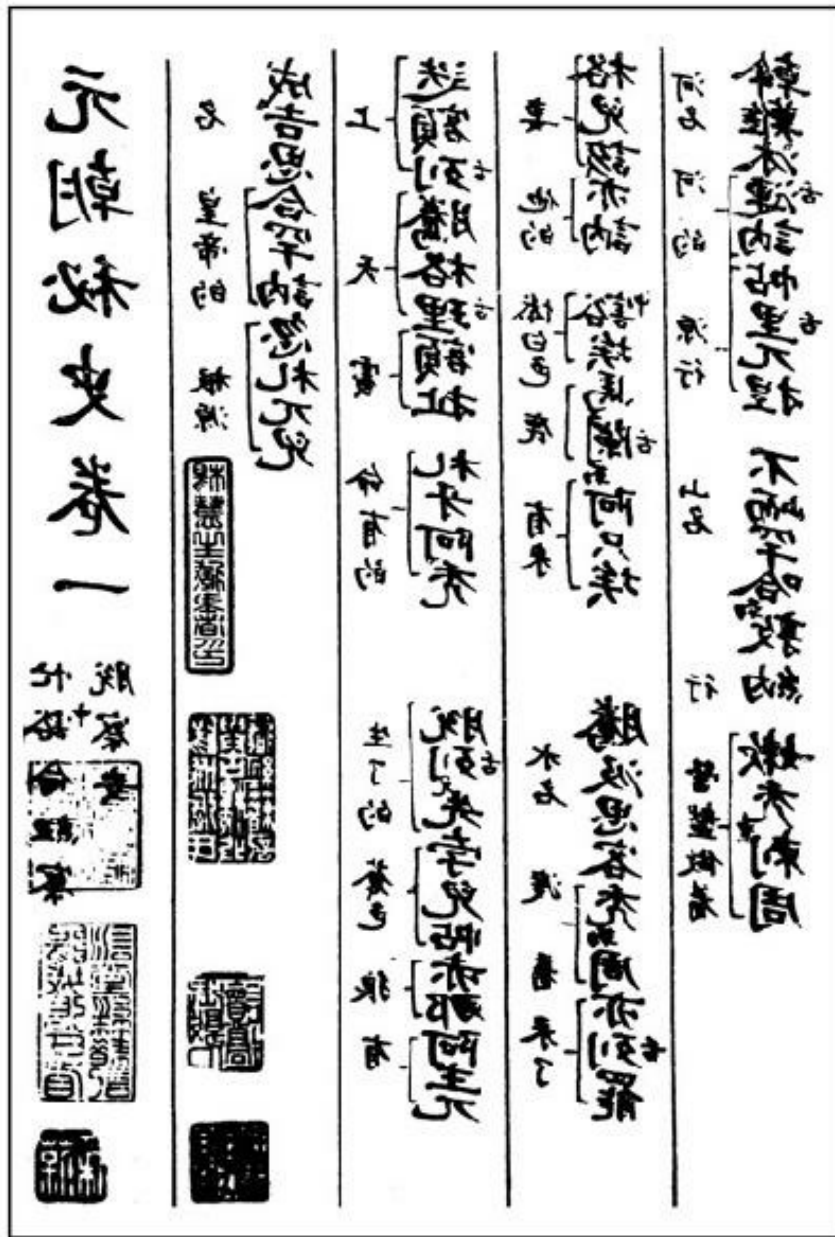 元朝秘史卷一
忙中豁侖紐察
脫察安
成吉思合罕訥忽札兀兒
名 皇帝的 根源
迭額舌列騰格舌理額扯札牙阿禿 脫舌列先孛兒帖赤那阿主兀
上 天 處 命有的 生了的 蒼色 狼 有
格兒該亦訥中豁埃馬舌闌勒阿只埃 騰汲思客禿勒周亦舌列罷
妻 他的 慘白色 鹿 有來 水名 渡着 來了
斡難沐舌漣訥帖舌里兀捏 不峏罕哈勒敦納 嫩禿黑剌周
河名 河的 源行 山名 行 營盤做着